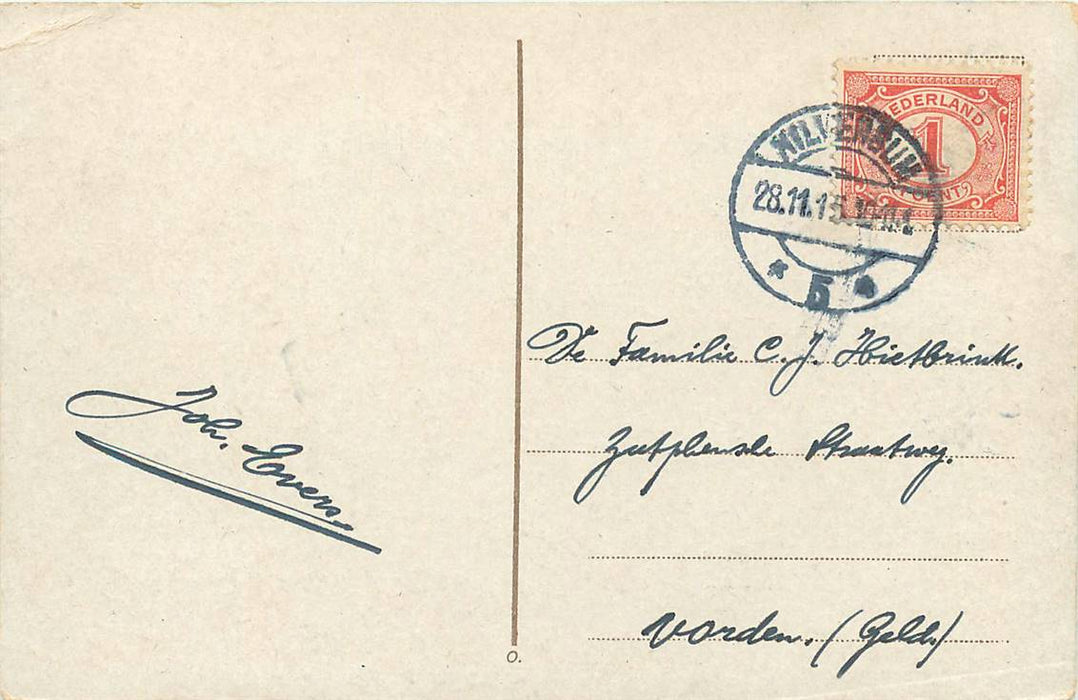 NEDERLAND
1
CENT
HILVERSUM
28.11.15
5
De Familie C. J. Hietbrink.
Zutphensche Straatweg.
Vorden. (Geld.)
Joh. Evers.
O.